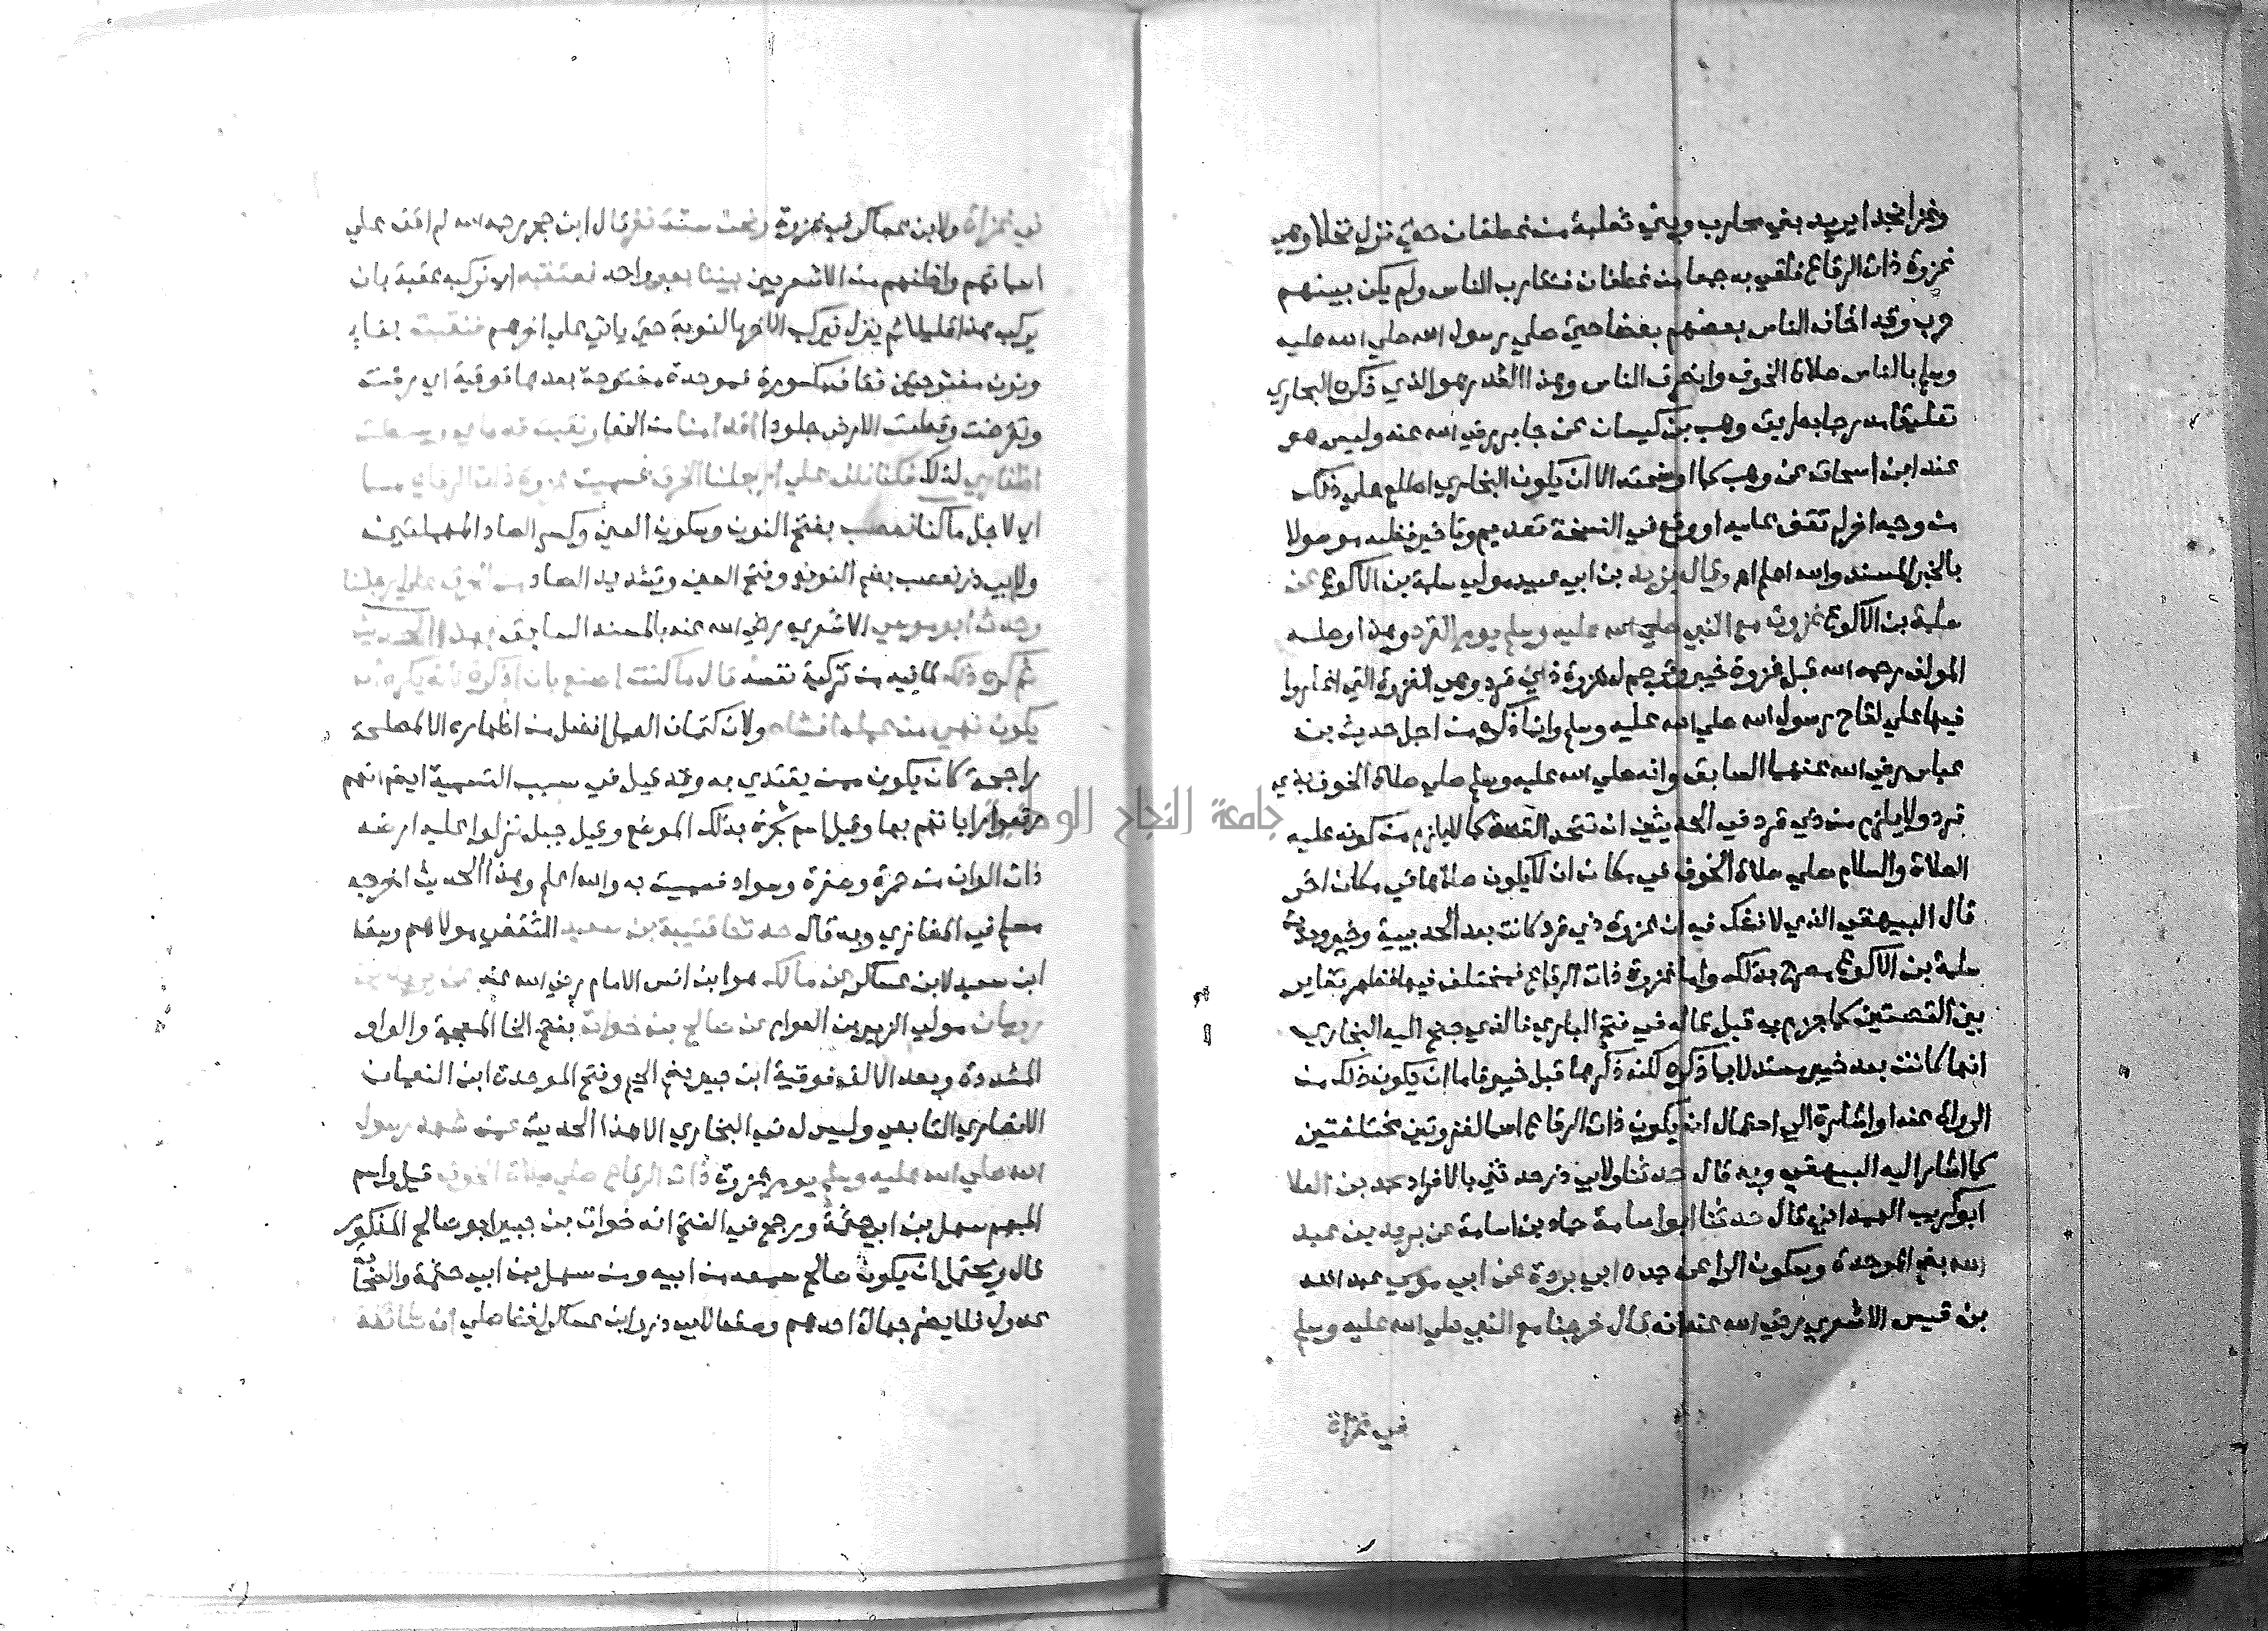 وغزا نجدا يريد بني محارب وبني ثعلبة من غطفان حتي نزل نخلا وهي
غزوة ذات الرقاع فلقي به جمعا من غطفان فتقارب الناس ولم يكن بينهم
حرب وقد اخاف الناس بعضهم بعضا حتي صلي رسول الله صلي الله عليه
وسلم بالناس صلاة الخوف وانصرف الناس وهذا القدر هو الذي ذكره البخاري
تعليقا مدرجا بطريق وهب بن كيسان عن جابر رضي الله عنه وليس هو
عند ابن اسحاق عن وهب كما اوضحته الا ان يكون البخاري اطلع علي ذلك
من وجه اخر لم نقف عليه او وقع في النسخة تقديم وتاخير فظنه موصولا
بالخبر المسند والله اعلم اهـ وقال يزيد بن ابي عبيد مولي سلمة بن الاكوع عن
سلمة بن الاكوع غزوت مع النبي صلي الله عليه وسلم يوم القرد وهذا وصله
المولف رحمه الله قبل غزوة خيبر وترجم له غزوة ذي قرد وهي الغزوة التي اغاروا
فيها علي لقاح رسول الله صلي الله عليه وسلم وانما ذكره من اجل حديث بن
عباس رضي الله عنهما السابق وانه صلي الله عليه وسلم صلي صلاة الخوف بذي
قرد ولا يلزم من ذي قرد في الحديثين ان تتحد القصة كما لا يلزم من كونه عليه
الصلاة والسلام صلي صلاة الخوف في مكان ان لا يكون صلاها في مكان اخر
قال البيهقي الذي لا نشك فيه ان غزوة ذي قرد كانت بعد الحديبية وخيبر وحديث
سلمة بن الاكوع مصرح بذلك واما غزوة ذات الرقاع فمختلف فيها فظهر تغاير
بين القصتين كما جزم به قبل قاله في فتح الباري فالذي جنح اليه البخاري
انها كانت بعد خيبر مستدلا بما ذكره لكنه ذكرها قبل خيبر فاما ان يكون ذلك من
الرواة عنه او اشارة الي احتمال ان يكون ذات الرقاع اسما لغزوتين مختلفتين
كما اشار اليه البيهقي وبه قال حدثنا ولابي ذر حدثني بالافراد محمد بن العلا
ابو كريب الهمداني قال حدثنا ابو اسامة حماد بن اسامة عن بريد بن عبد
الله بضم الموحدة وسكون الرا عن جده ابي بردة عن ابي موسي عبد الله
بن قيس الاشعري رضي الله عنه انه قال خرجنا مع النبي صلي الله عليه وسلم
في غزاة
في غزاة ولابن عساكر في غزوة ونحن ستة نفر قال ابن حجر رحمه الله لم اقف علي
اسمائهم واظنهم من الاشعريين بيننا بعير واحد نعتقبه اي نركبه عقبة بان
يركب هذا قليلا ثم ينزل فيركب الاخر بالنوبة حتي ياتي علي اخرهم فنقبت بفاء
ونون مفتوحتين فقاف مكسورة فموحدة مفتوحة بعدها فوقية اي رقت
وتقرضت وقطعت الارض جلود اقدامنا من الحفا ونقبت قدماي وسقطت
اظفاري لذلك فكنا نلف علي ارجلنا الخرق فسميت غزوة ذات الرقاع لما
اي لاجل ما كنا نعصب بفتح النون وسكون العين وكسر الصاد المهملتين
ولابي ذر نعصب بضم النون وفتح العين وتشديد الصاد من الخرق علي ارجلنا
وحدث ابو موسي الاشعري رضي الله عنه بالسند السابق بهذا الحديث
ثم كره ذلك لما فيه من تزكية نفسه قال ما كنت اصنع بان اذكره كانه كره ان
يكون شي من عمله افشاه ولان كتمان العمل افضل من اظهاره الا لمصلحة
راجحة كان يكون ممن يقتدي به وقد قيل في سبب التسمية ايضا انهم
رقعوا راياتهم بها وقيل اسم شجرة بذلك الموضع وقيل جبل نزلوا عليه ارضه
ذات الوان من حمرة وصفرة وسواد فسميت به والله اعلم وهذا الحديث اخرجه
مسلم في المغازي وبه قال حدثنا قتيبة بن سعيد الثقفي مولاهم وسقط
ابن سعيد لابن عساكر عن مالك هو ابن انس الامام رضي الله عنه عن يزيد بن
رومان مولي الزبير بن العوام عن صالح بن خوات بفتح الخا المعجمة والواو
المشددة وبعد الالف فوقية ابن جبير بضم الجيم وفتح الموحدة ابن النعمان
الانصاري التابعي وليس له في البخاري الا هذا الحديث عمن شهد رسول
الله صلي الله عليه وسلم يوم غزوة ذات الرقاع صلي صلاة الخوف قيل واسم
المبهم سهل بن ابي حثمة ورجح في الفتح انه خوات بن جبير ابو صالح المذكور
قال ويحتمل ان يكون صالح سمعه من ابيه ومن سهل بن ابي حثمة والصحابة
عدول فلا يضر جهالة احدهم وسقط لابي ذر وابن عساكر لفظ صلي ان طائفة
جامعة النجاح الوطنية